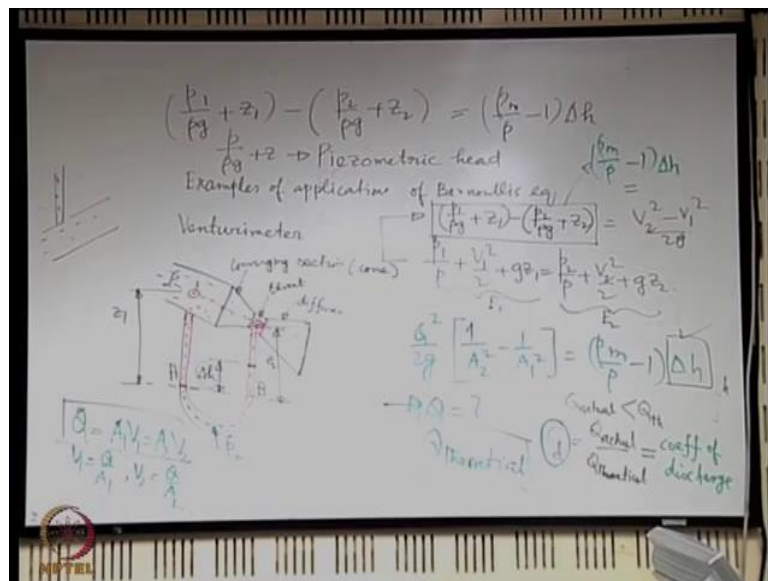 (p1/ρg + z1) − (p2/ρg + z2) = (ρm/ρ − 1)Δh
p/ρg + z → Piezometric head
Examples of application of Bernoullis eq
(ρm/ρ − 1)Δh
=
Venturimeter
(p1/ρg + z1) − (p2/ρg + z2) = V2² − V1² / 2g
p1/ρ + V1²/2 + gz1 = p2/ρ + V2²/2 + gz2
E1
E2
converging section (cone)
throat
z1
Δh
A
B
Q²/2g [1/A2² − 1/A1²] = (ρm/ρ − 1) Δh
Q = ?
Qactual < Qth
Qtheoretical
Cd = Qactual/Qtheoretical = coeff of discharge
Q = A1V1 = A2V2
V1 = Q/A1, V2 = Q/A2
NPTEL